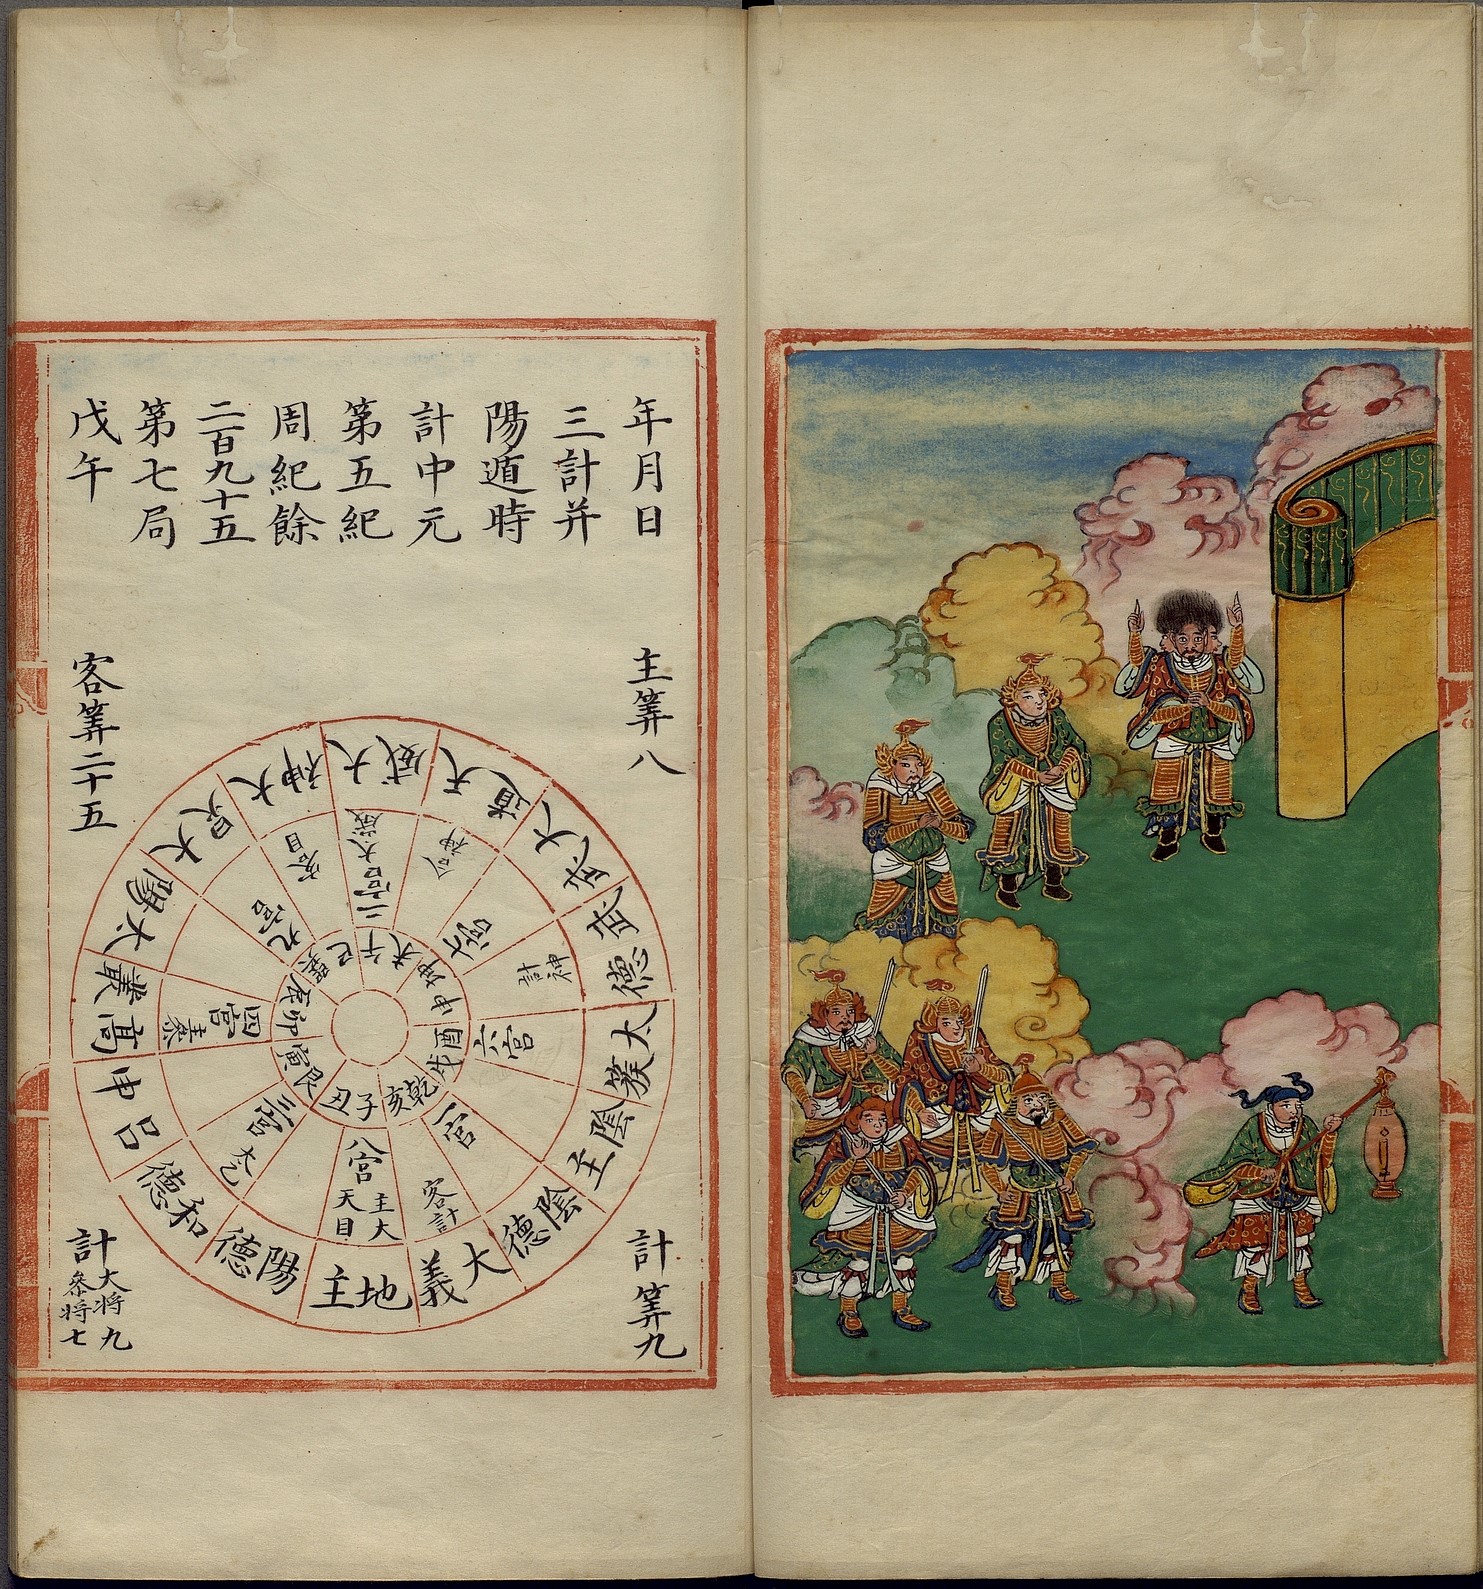 年月日
三計并
陽遁時
計中元
第五紀
周紀餘
二百九十五
第七局
戊午
主筭八
客筭二十五
計筭九
計大將九
參將七
大威
天道
大武
武德
太簇
陰主
陰德
大義
地主
陽德
和德
呂申
高叢
太陽
大炅
大神
二宮太歲
合神
七宮
計神
六宮
一宮
客計
八宮
主大
天目
三宮
太乙
四宮
九宮
客目
午
未
坤
申
酉
戌
乾
亥
子
丑
艮
寅
卯
辰
巽
巳